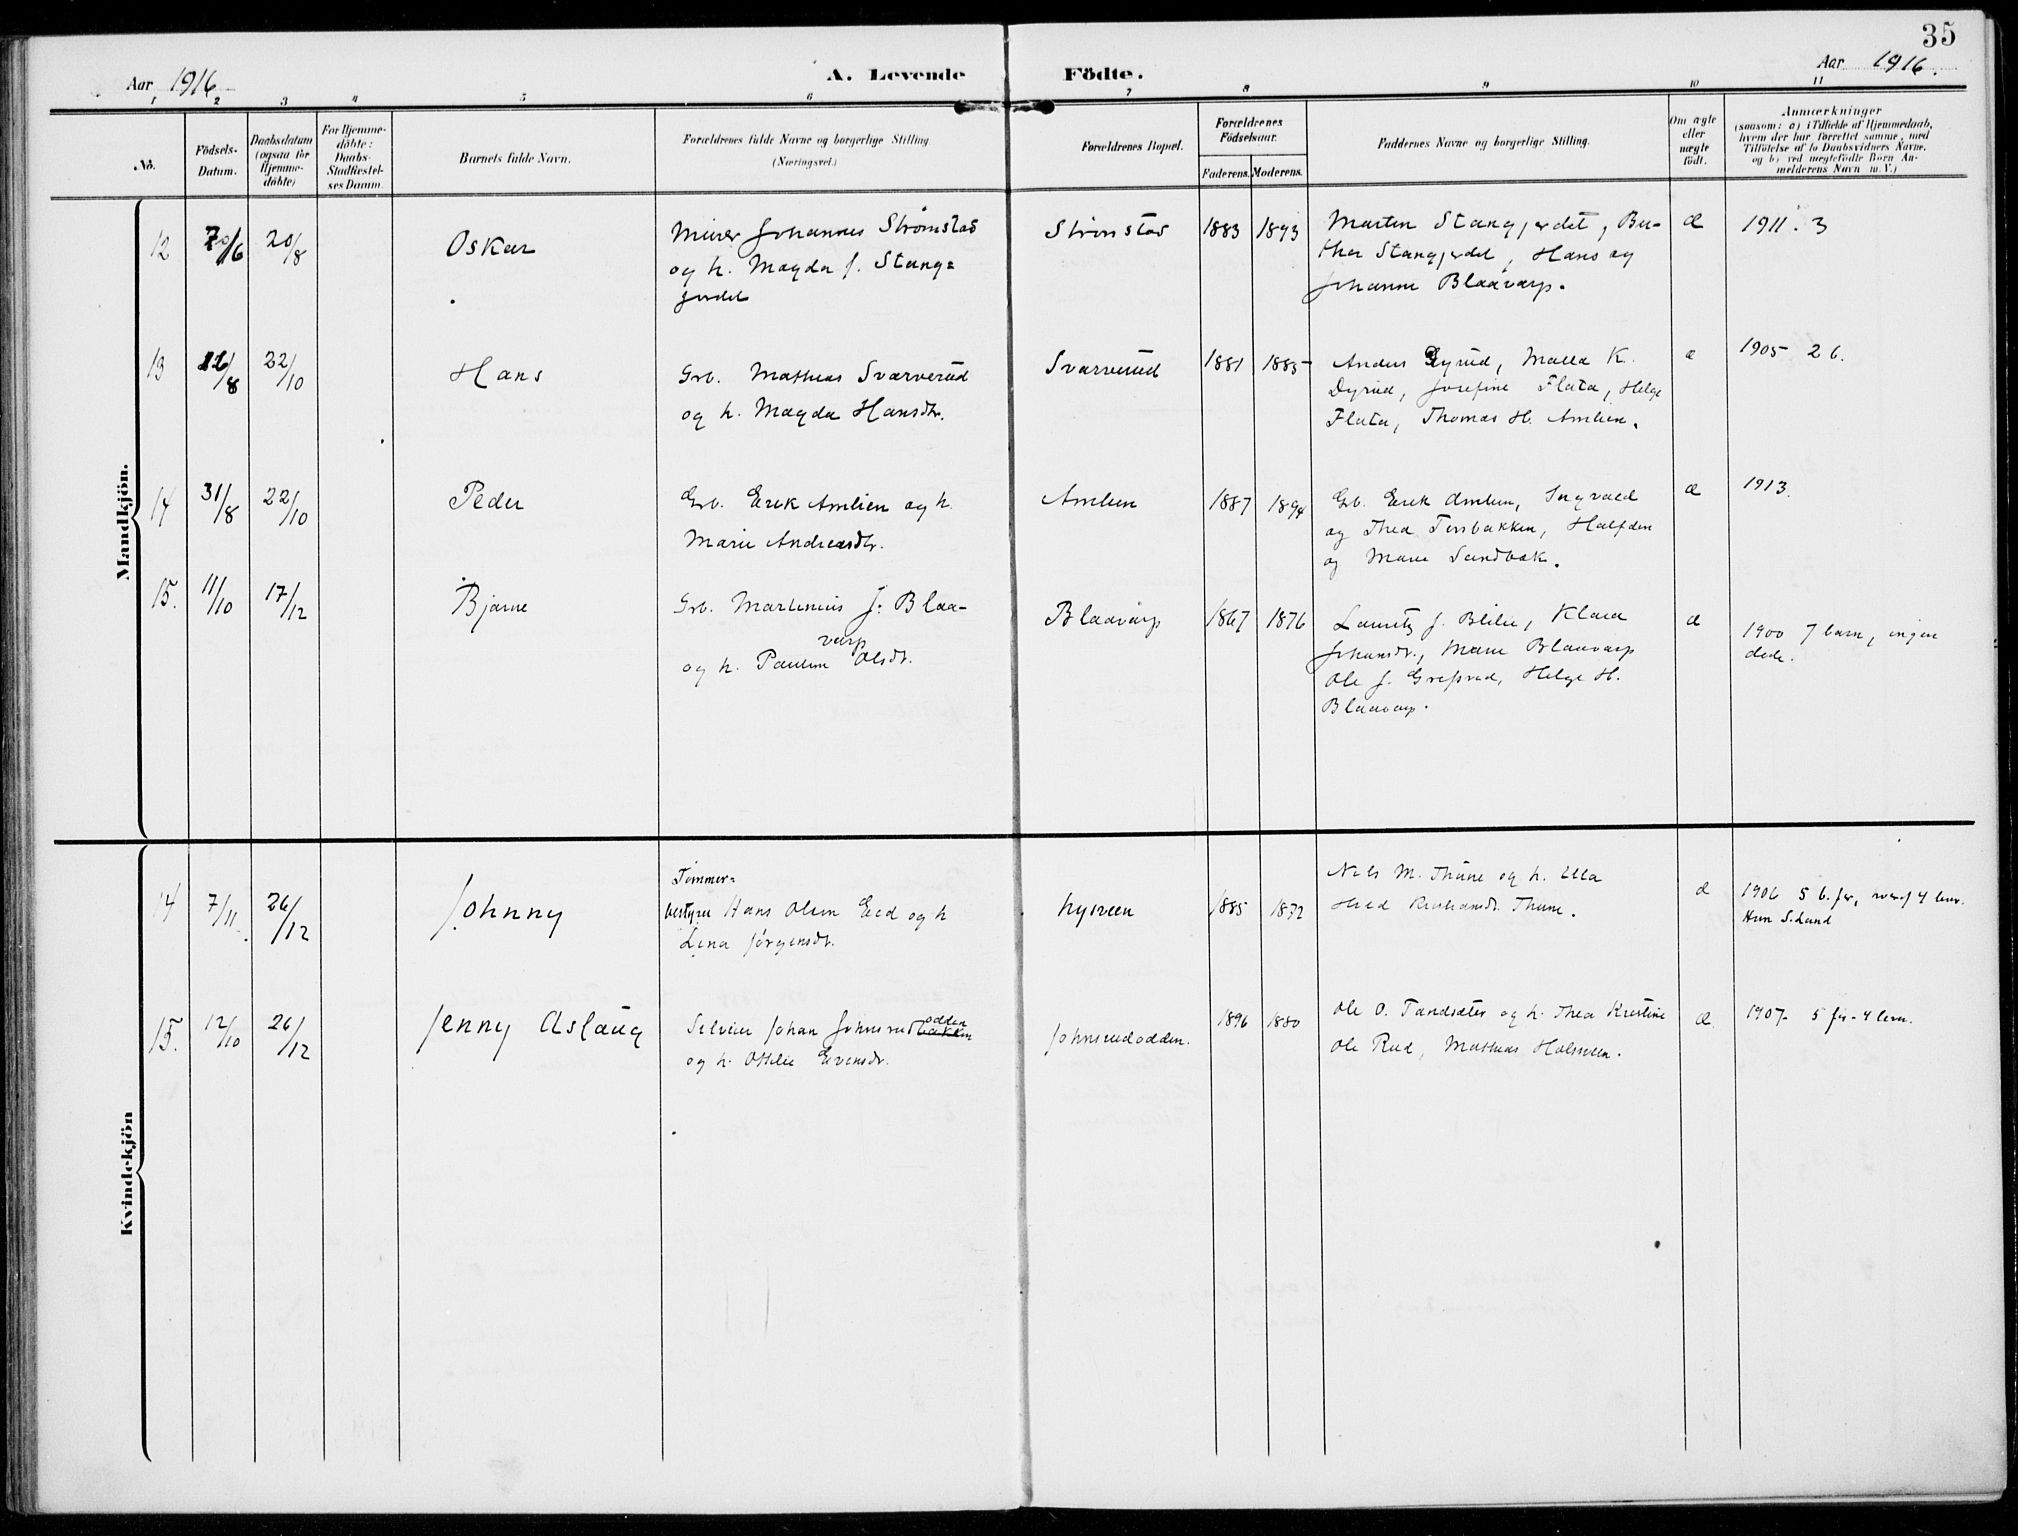 35
Aar 1916
A. Levende Födte.
Aar 1916.
1 2 3 4 5 6 7 8 9 10 11
No.
Födsels-
Datum.
Daabsdatum
(ogsaa for
Hjemme-
döbte)
For Hjemme-
döbte:
Daabs-
Stadfestel-
ses Datum
Barnets fulde Navn.
Forældrenes fulde Navne og borgerlige Stilling
(Næringsvei.)
Forældrenes Bopæl.
Forældrenes
Födselsaar.
Faderens. Moderens.
Faddernes Navne og borgerlige Stilling.
Om ægte
eller
uægte
födt.
Anmærkninger
(saasom: a) i Tilfælde af Hjemmedaab,
hvem der har forrettet samme, med
Tilföielse af to Daabsvidners Navne,
og b) ved uægtefödte Börn An-
melderens Navn m. V.)
Mandkjön.
12 20/8 Oskar
Murer Johannes Strømstad
og h. Magda J. Stang=
jordet
Strømstad 1883 1893
Marten Stangjordet, Ber-
tha Stangjordet, Hans og
Johanne Blaavarp.
æ 1911. 3
13 22/10 Hans
Grb. Mathias Svarverud
og h. Magda Hansdtr.
Svarverud 1881 1885
Anders Dyrud, Malla K.
Dyrud, Josefine Flata, Helge
Flata, Thomas H. Amlien.
æ 1905 2 6.
14 31/8 22/10 Peder
Grb. Erik Amlien og h.
Marie Andreasdtr.
Amlien 1887 1894
Grb. Erik Amlien, Ingvald
og Thea Torsbakken, Halfdan
og Marie Sandbæk.
æ 1913.
15. 11/10 17/12 Bjarne
Grb. Martinius J. Blaa-
varp
og h. Pauline Olsdt.
Blaavarp 1867 1876
Lauritz J. Blilie, Klara
Johansdt., Marie Blaavarp
Ole J. Grefsrud, Helge H.
Blaavarp.
æ 1900 7 barn, ingen
døde.
Kvindekjön
14 7/11 26/12 Johnny
Tømmer=
bestyrer Hans Olsen Eid og h
Lina Jørgensdt.
Nysveen 1885 1872
Nils M. Thune og h. Ella
Thune.
æ 1906 5 b. før, 4 lever.
Hun S. Land
15. 12/10 26/12 Jenny Aslaug
Johan Johnsrudbakken odden
og h. Othilie Evensdt.
Johnsrudodden. 1896 1880
Ole O. Tandsæter og h. Thea Kristine
Ole Rud, Mathias Holsveen.
æ. 1907- 5 før - 4 lever.